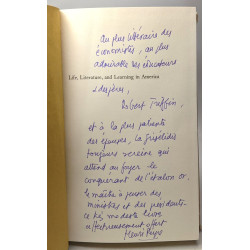 Au plus littéraire des
économistes, au plus
admirable des éducateurs
& des pères,
Life, Literature, and Learning in America
Robert Triffin,
et à la plus patiente
des épouses, la Griselidis
toujours sereine qui
attend au foyer le
conquérant de l'étalon or,
le maître à penser des
ministres et des présidents
ce modeste livre
affectueusement offert
Henri Peyre